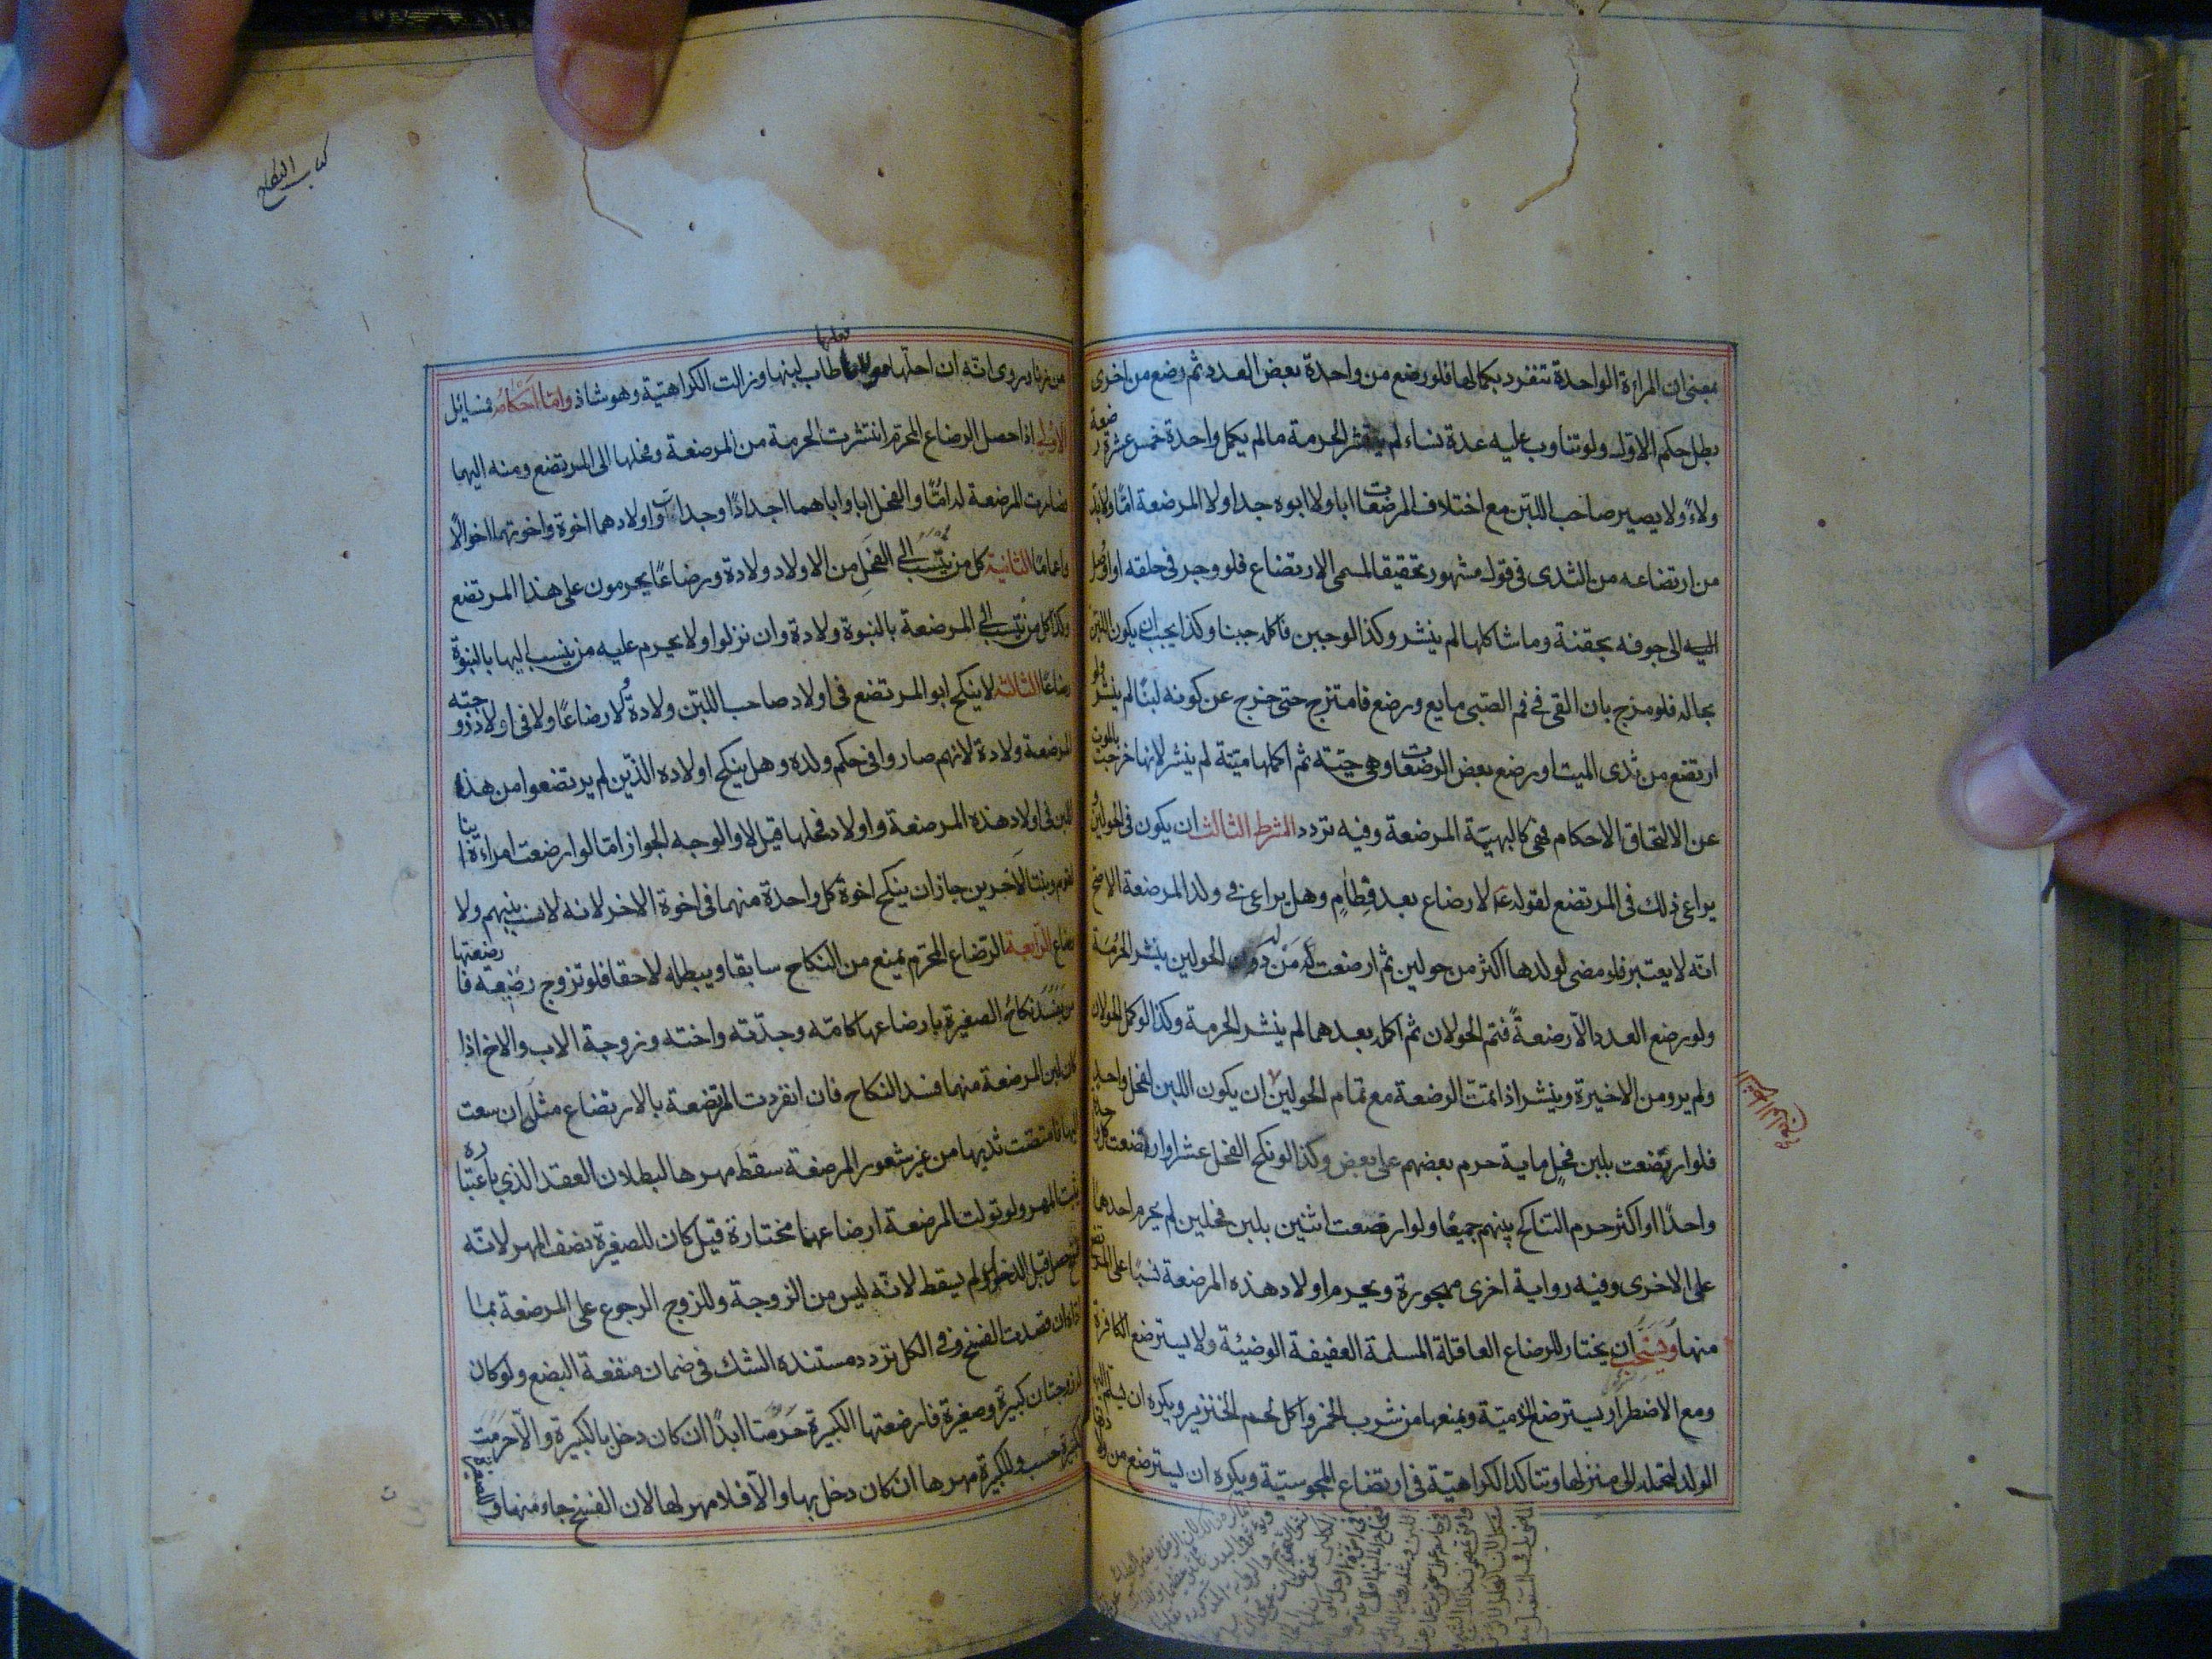 بمعنى ان المراءة الواحدة تنفرد بكمالها فلو رضع من واحدة بعض العدد ثم رضع من اخرى
بطل حكم الاول ولو تناوب عليه عدة نساء لم ينشر الحرمة ما لم يكمل واحدة خمس عشرة رضعة
ولاءً ولا يصير صاحب اللبن مع اختلاف المرضعات ابا ولا ابوه جدا ولا المرضعة امّا ولا بد
من ارتضاعه من الثدى فى قول مشهور تحقيقا لمسمى الارتضاع فلو وجر فى حلقه او اوصل
اليه الى جوفه بحقنة وما شاكلها لم ينشر وكذا لو جبن فاكله جبنا وكذا يجب ان يكون اللبن
بحاله فلو مزج بان القى فى فم الصبى مايع ورضع فامتزج حتى خرج عن كونه لبنًا لم ينشر ولو
ارتضع من ثدى الميت او رضع بعض الرضعات وهى حيّة ثم اكملها ميّتة لم ينشر لانها خرجت بالموت
عن الالتحاق الاحكام فهى كالبهيمة المرضعة وفيه تردد الشرط الثالث ان يكون فى الحولين
يراعى ذلك فى المرتضع لقوله ع لا رضاع بعد فطامٍ وهل يراعى فى ولد المرضعة الاصح
انه لا يعتبر فلو مضى لولدها اكثر من حولين ثم ارضعت من دون الحولين ينشر الحرمة
ولو رضع العدد الّا رضعةً فتم الحولان ثم اكمله بعدهما لم ينشر الحرمة وكذا لو كمل الحولان
ولم يرو من الاخيرة وينشر اذا تمت الرضعة مع تمام الحولين ان يكون اللبن لفحل واحد
فلو ارتضعت بلبن فحلٍ ماية حرم بعضهم على بعض وكذا لو نكح الفحل عشرا وارتضعت كل واحدة
واحدًا او اكثر حرم التناكح بينهم جميعًا ولو ارضعت اثنين بلبن فحلين لم يحرم احدهما
على الاخرى وفيه رواية اخرى مهجورة ويحرم اولاد هذه المرضعة نسبًا على المرتضع
منها ويستحب ان يختار للرضاع العاقلة المسلمة العفيفة الوضيئة ولا يسترضع الكافرة
ومع الاضطرار يسترضع الذمّيّة ويمنعها من شرب الخمر واكل لحم الخنزير ويكره ان يسلم اليها
الولد لتحمله الى منزلها وتتاكد الكراهيّة فى ارتضاع المجوسيّة ويكره ان يسترضع من
كتاب النكاح
من زنا وروى انه ان احلها مولاها طاب لبنها وزالت الكراهيّة وهو شاذ وامّا احكامه فمسايل
الاولى اذا حصل الرضاع المحرم انتشرت الحرمة من المرضعة وفحلها الى المرتضع ومنه اليهما
فصارت المرضعة له امًّا والفحل ابا واباهما اجدادًا وجدات واولادهما اخوة واخوتهما اخوالًا
واعمامًا الثانية كل من ينتسب الى الفحل من الاولاد ولادة ورضاعًا يحرمون على هذا المرتضع
وكذا كل من ينتسب الى المرضعة بالبنوة ولادة وان نزلوا ولا يحرم عليه من ينسب اليها بالبنوّة
رضاعًا الثالثة لا ينكح ابو المرتضع فى اولاد صاحب اللبن ولادةً ولا رضاعًا ولا فى اولاد زوجته
المرضعة ولادة لانهم صاروا فى حكم ولده وهل ينكح اولاده الذين لم يرتضعوا من هذا
اللبن فى اولاد هذه المرضعة واولاد فحلها قيل لا والوجه الجواز امّا لو ارضعت امراءة ابنا
لقوم وبنت الآخرين جاز ان ينكح اخوة كل واحدة منهما فى اخوة الاخر لانه لا نسب بينهم ولا
رضاع الرابعة الرضاع المحرم يمنع من النكاح سابقا ويبطله لاحقا فلو تزوج رضيعة فارضعتها
من يفسد نكاح الصغيرة بارضاعها كامّه وجدّته واخته وزوجة الاب والاخ اذا
كان لبن المرضعة منهما فسد النكاح فان انفردت المرتضعة بالارتضاع مثل ان سعت
اليها فامتصّت ثديها من غير شعور المرضعة سقط مهرها لبطلان العقد الذي باعتباره
يثبت المهر ولو تولت المرضعة ارضاعها مختارة قيل كان للصغيرة نصف المهر لانّه
فسخ حصل قبل الدخول لم يسقط لانّه ليس من الزوجة وللزوج الرجوع على المرضعة بما
اداه ان قصدت الفسخ وفى الكل تردد مستنده الشك فى ضمان منفعة البضع ولو كان
له زوجتان كبيرة وصغيرة فارضعتها الكبيرة حرمتا ابدًا ان كان دخل بالكبيرة والّا حرمت
الكبيرة حسب وللكبيرة مهرها ان كان دخل بها والّا فلا مهر لها لان الفسخ جاء منها وللصغيرة